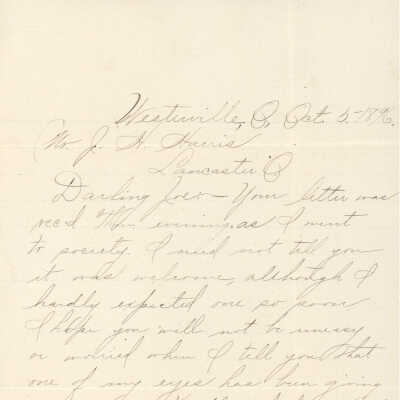 Westerville, O, Oct. 5-1896.
Mr J. H. Harris
Lancaster O
Darling Joe:- Your letter was
rec'd this evening as I went
to society. I need not tell you
it was welcome, although I
hardly expected one so soon
I hope you will not be uneasy
or worried when I tell you that
one of my eyes has been going